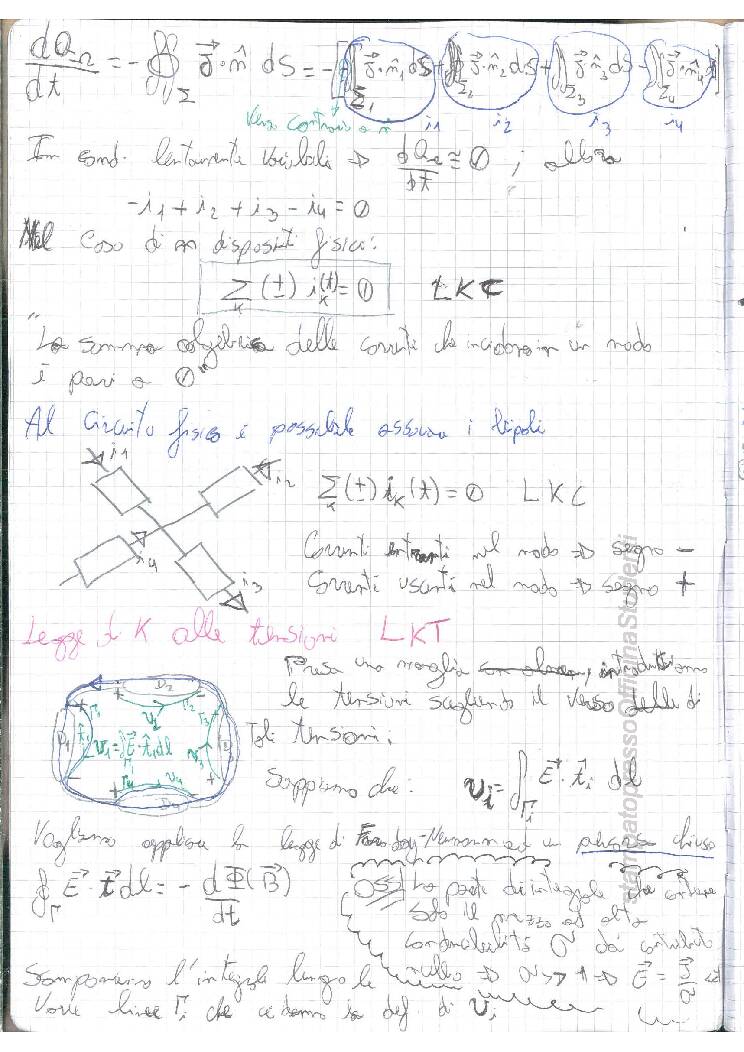 dQΩ/dt = - ∯Σ J⃗·n̂ dS = -[∬Σ1 J⃗·n̂1 dS + ∬Σ2 J⃗·n̂2 dS + ∬Σ3 J⃗·n̂3 dS - ∬Σ4 J⃗·n̂4 dS]
i1 i2 i3 i4
In cond. lentamente variabile ⇒ dQΩ/dt ≅ 0 ; allora
-i1 + i2 + i3 - i4 = 0
Nel caso di n dispositi fisici:
∑K (±) iK(t) = 0 LKC
"La somma algebrica delle correnti che incidono in un nodo
è pari a 0"
Al circuito fisico è possibile associa i bipoli
i1
i2 ∑K (±) iK(t) = 0 LKC
i4 Correnti entranti nel nodo ⇒ segno -
i3 Correnti uscenti nel nodo ⇒ segno +
Legge di K alle tensioni LKT
Presa una maglia introduciamo
le tensioni scegliendo il verso delle di
tali tensioni;
D2
Γ1 Γ2 Γ3
D1 v1=∫E⃗·t̂1dl v2 v3 D3
Γ4 v4
Sappiamo che: vi = ∫Γi E⃗·t⃗i dl
Vogliamo applicare la legge di Faraday-Neumann ad un percorso chiuso
∮Γ E⃗·t⃗ dl = - dΦ(B⃗)/dt
OSS La parte di integrale che contiene
solo il mezzo ad alta
conducibilità σ dà contributo
nullo ⇒ σ>>1 ⇒ E⃗ = J⃗/σ
Scomponiamo l'integrale lungo le
varie linee Γi che ci danno la def. di vi
stamatopessoOfficinaStudenti